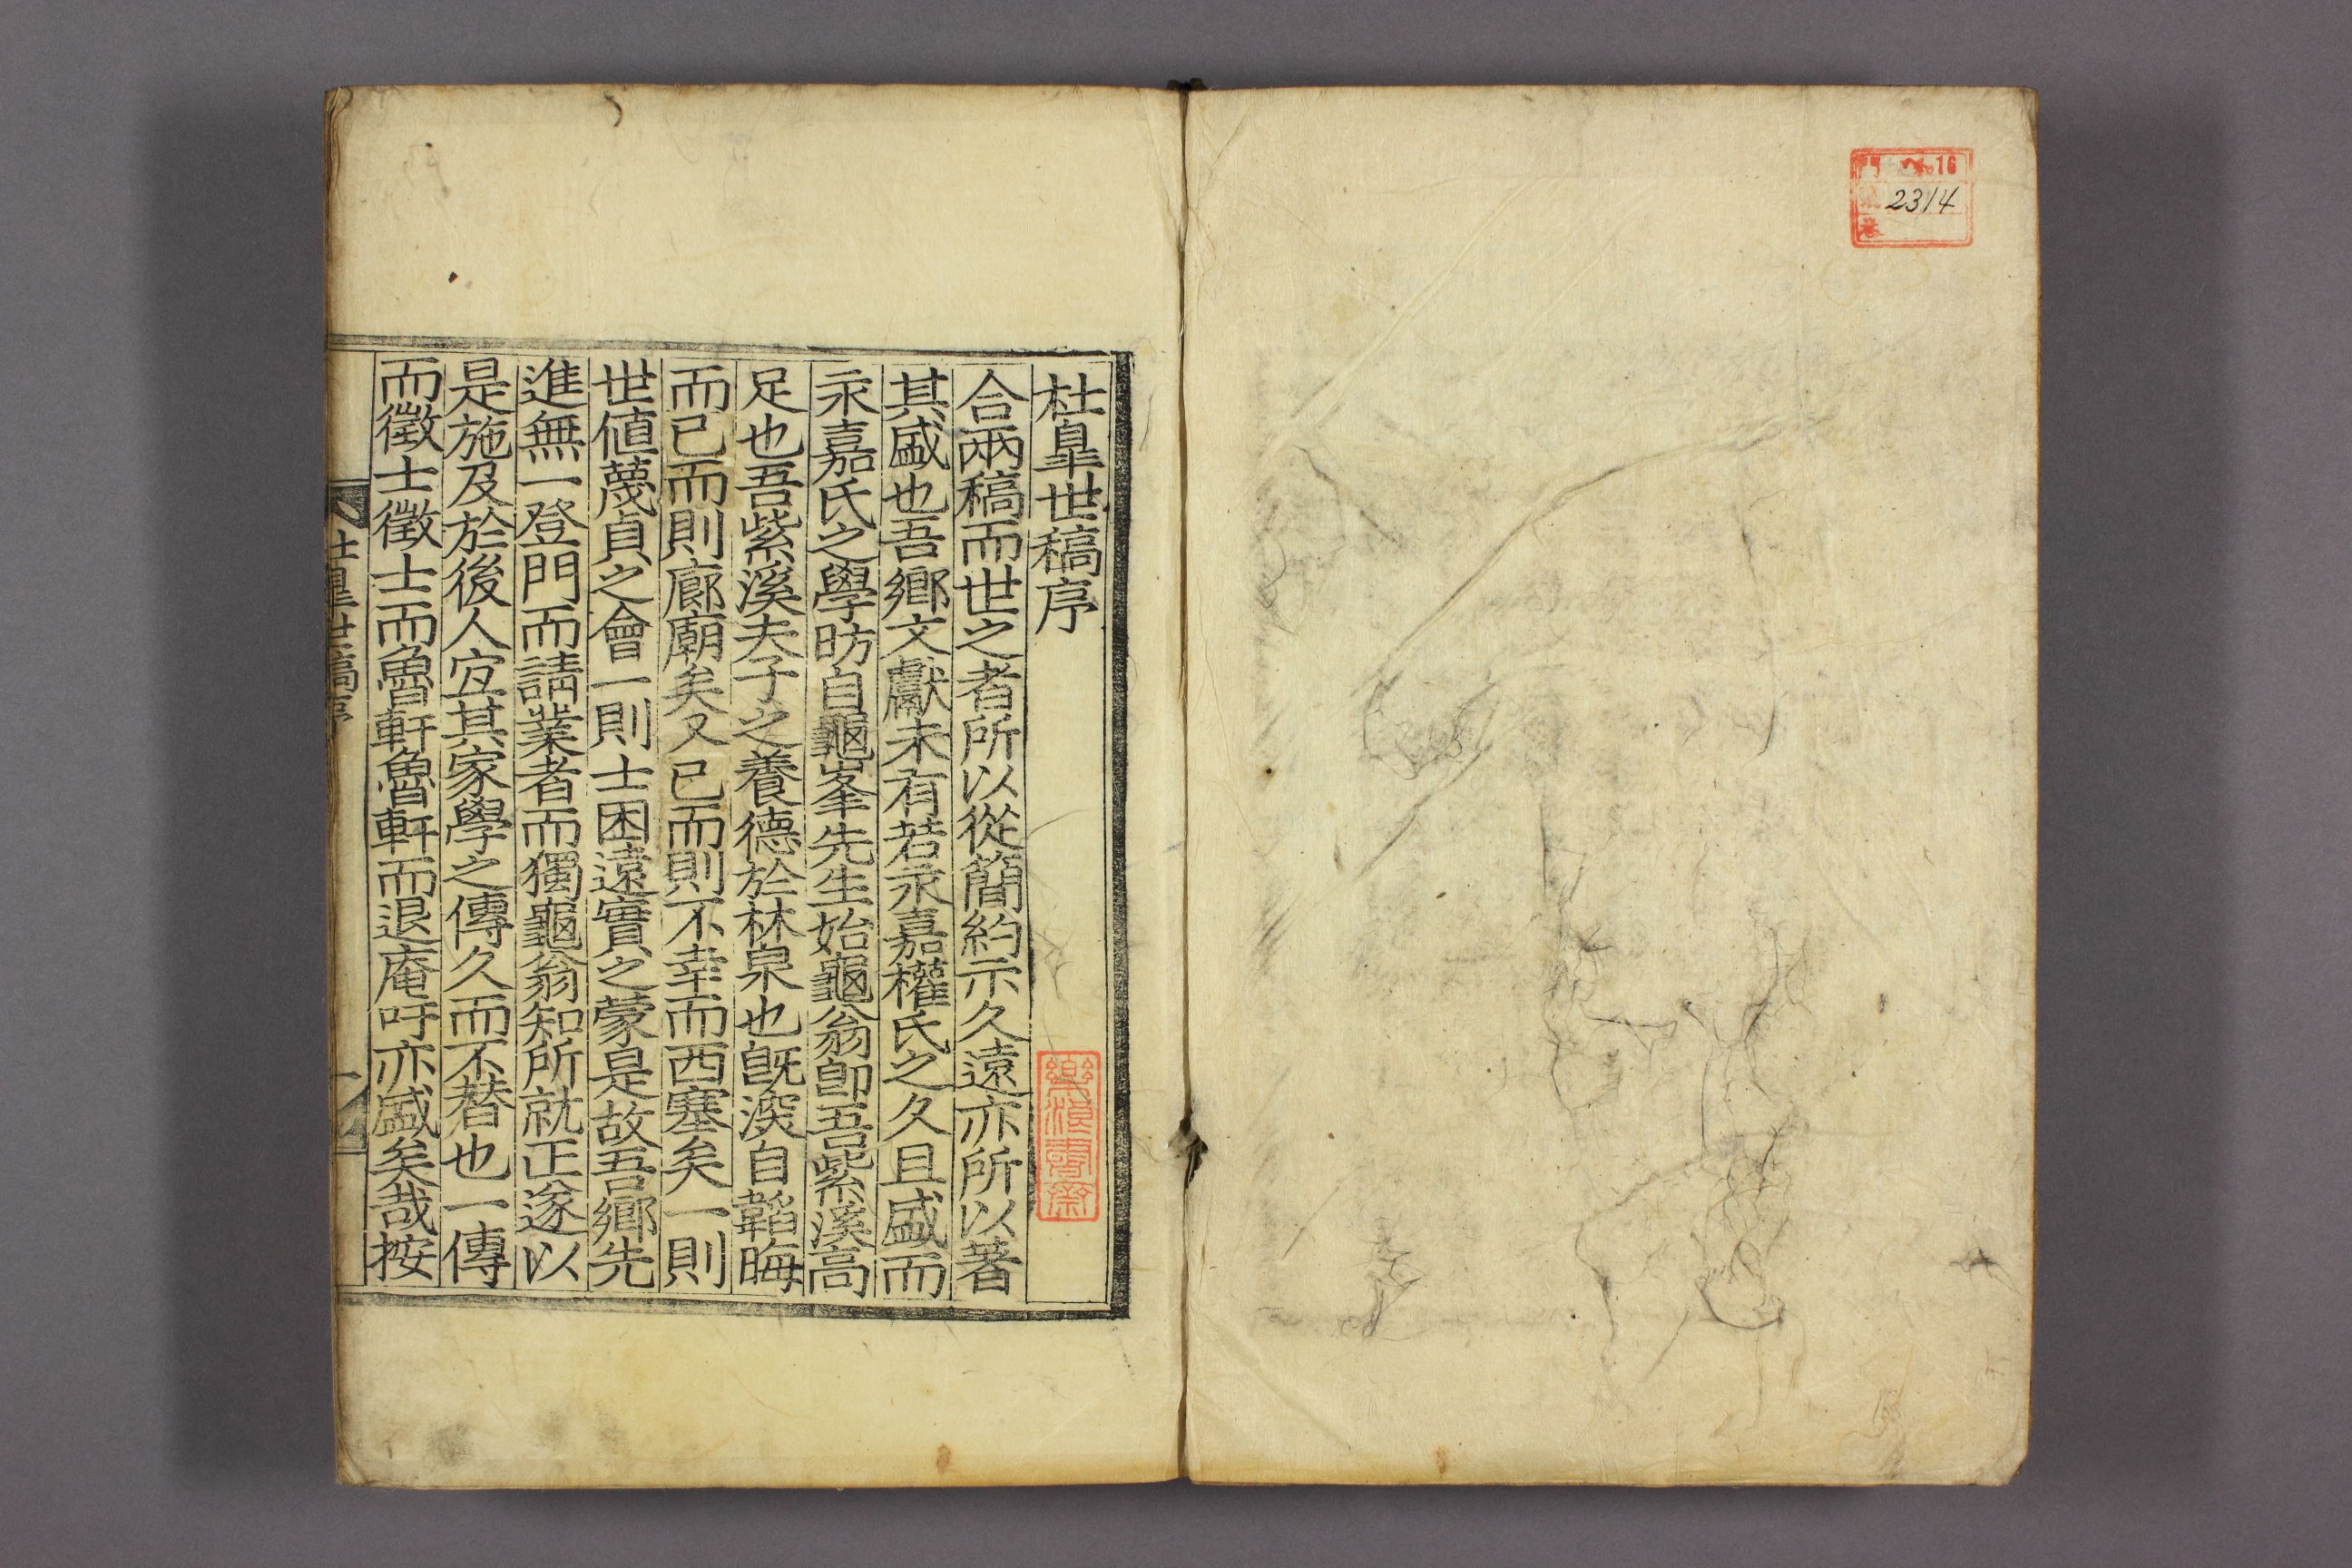 門
16
2314
巻
杜皐世稿序
合兩稿而世之者所以從簡約示久遠亦所以著
其盛也吾鄉文獻未有若永嘉權氏之久且盛而
永嘉氏之學昉自龜峯先生始龜翁卽吾紫溪高
足也吾紫溪夫子之養德於林泉也旣深自韜晦
而已而則廊廟矣又已而則不幸而西塞矣一則
世値蔑貞之會一則士困遠實之蒙是故吾鄉先
進無一登門而請業者而獨龜翁知所就正遂以
是施及於後人宜其家學之傳久而不替也一傳
而徵士徵士而魯軒魯軒而退庵吁亦盛矣哉按
杜皐世稿序
一